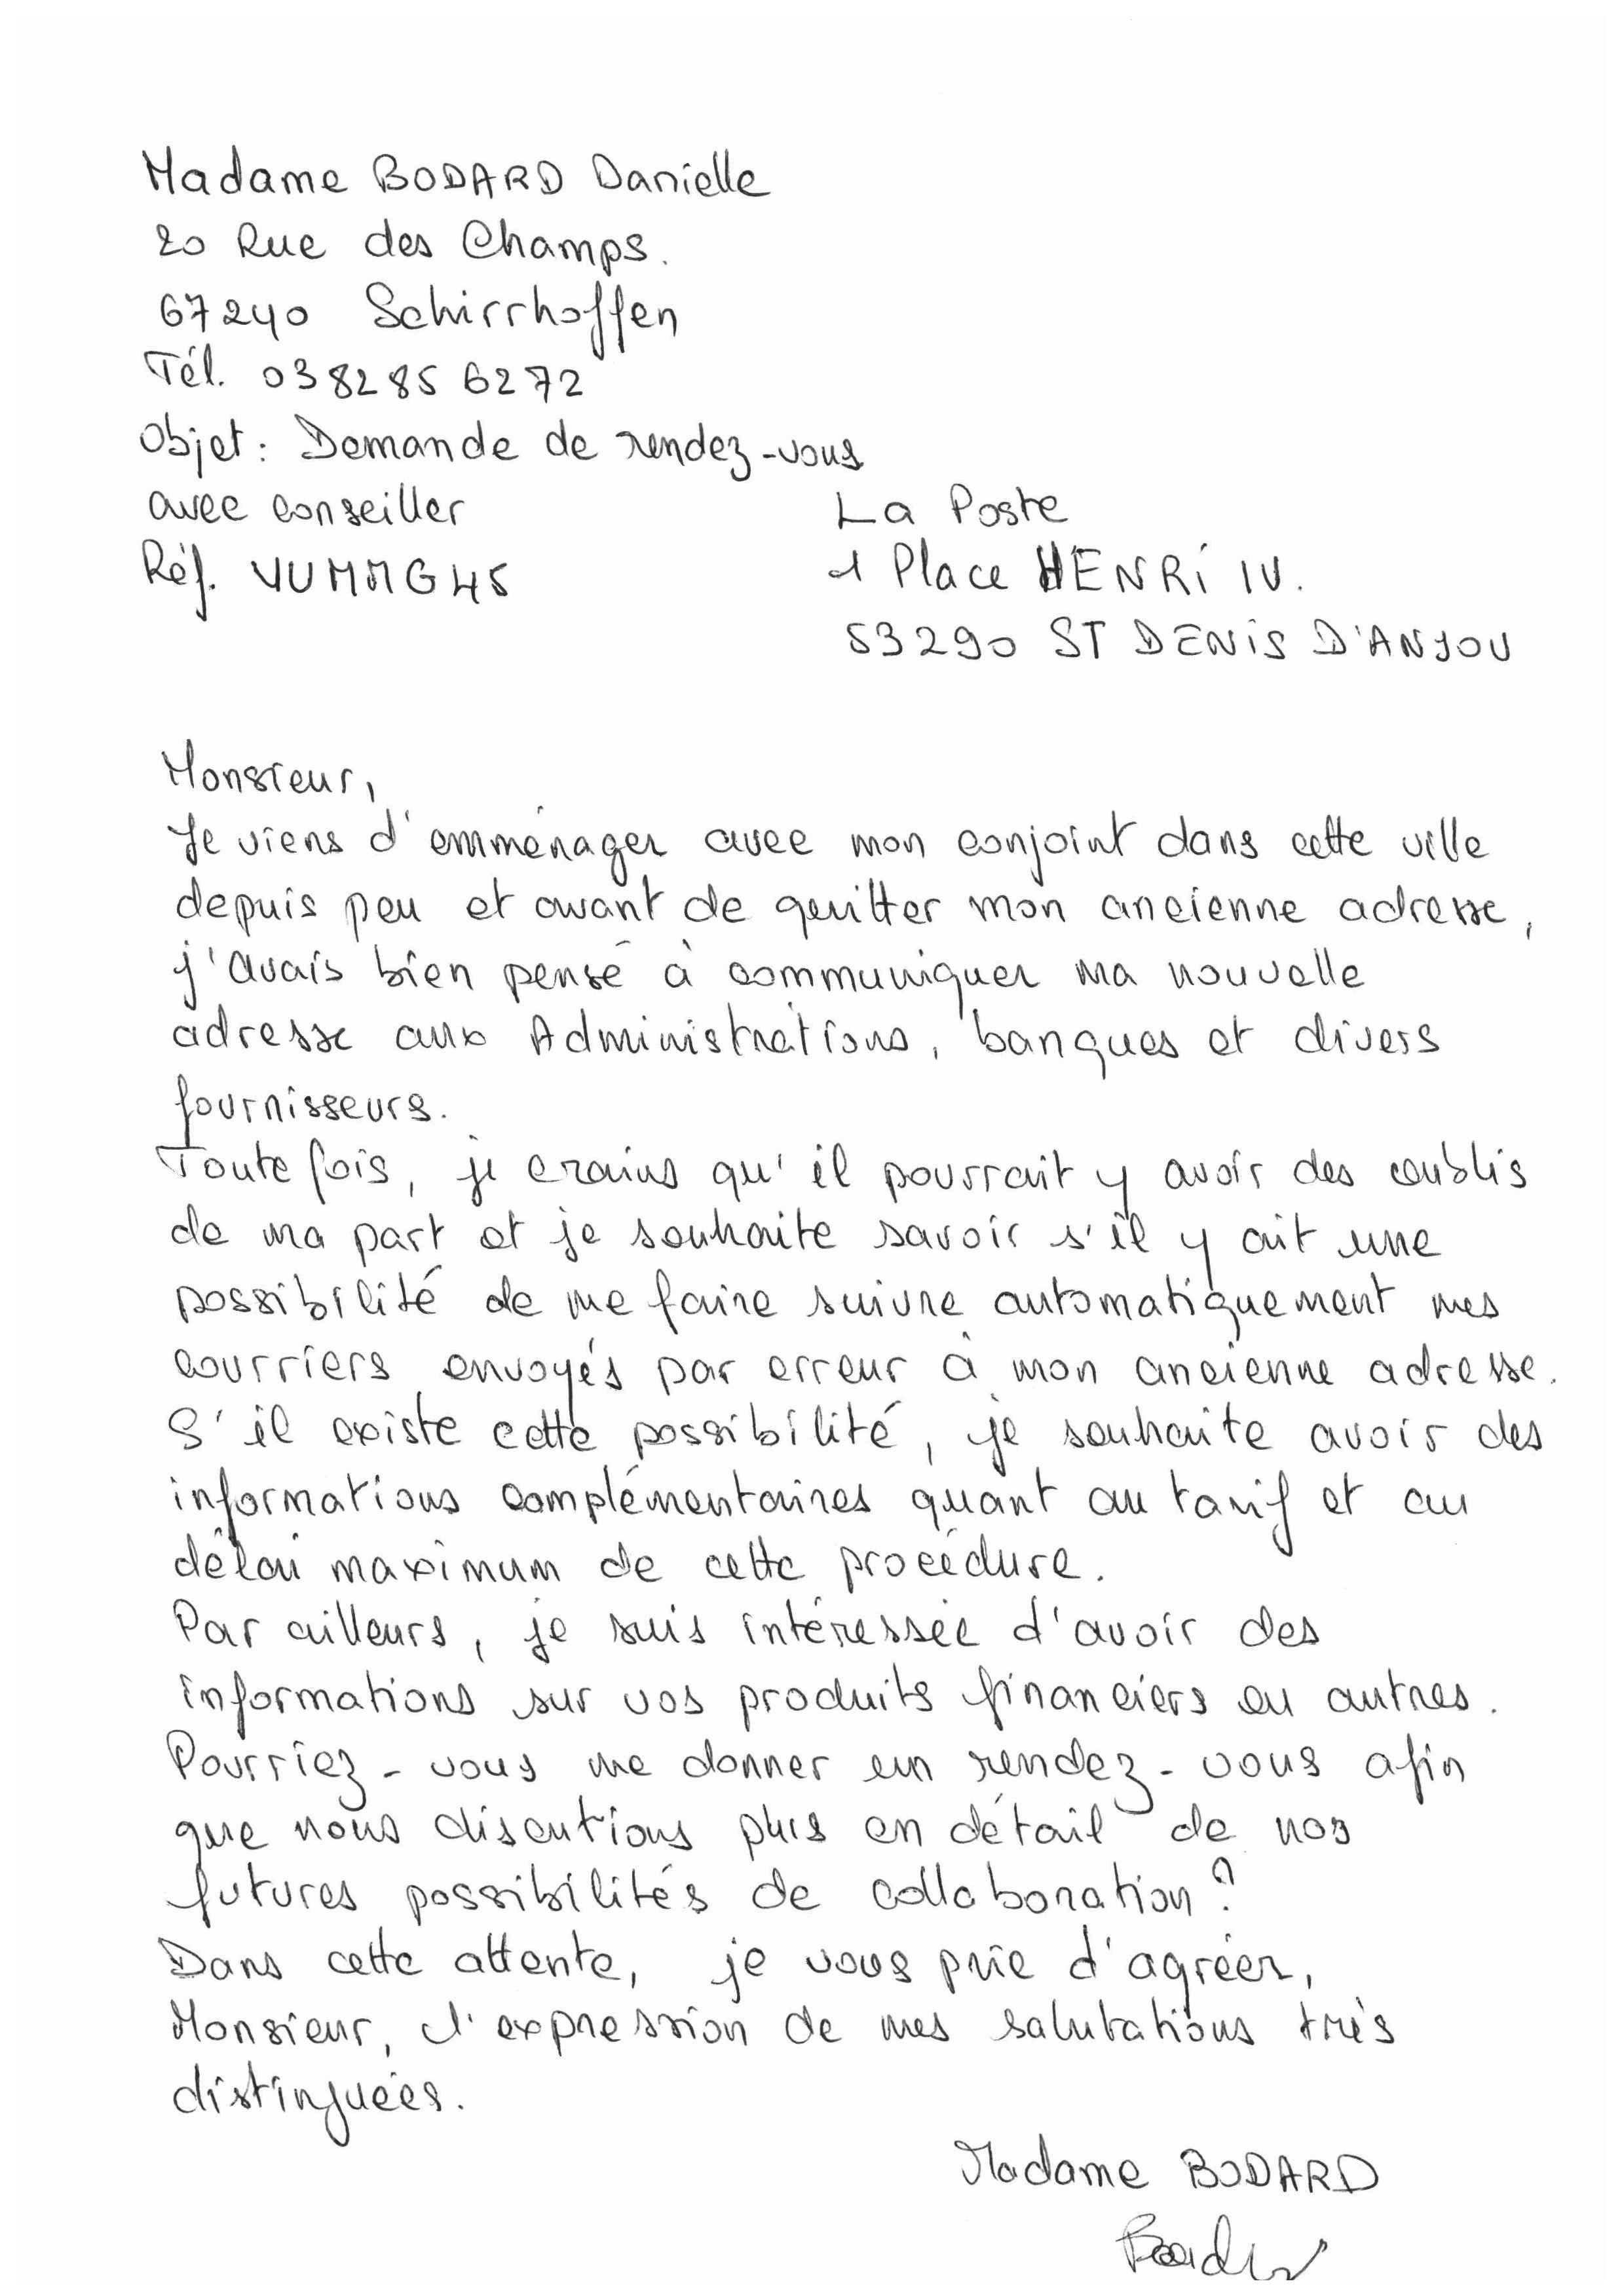 Madame BODARD Danielle
20 Rue des Champs.
67240 Schirrhoffen
Tél. 0382856272
Objet : Demande de rendez-vous
avec conseiller
Réf. VUMMG45
La Poste
1 Place HENRI IV.
53290 ST DENIS D'ANJOU
Monsieur,
Je viens d'emménager avec mon conjoint dans cette ville
depuis peu et avant de quitter mon ancienne adresse,
j'avais bien pensé à communiquer ma nouvelle
adresse aux Administrations, banques et divers
fournisseurs.
Toutefois, je crains qu'il pourrait y avoir des oublis
de ma part et je souhaite savoir s'il y ait une
possibilité de me faire suivre automatiquement mes
courriers envoyés par erreur à mon ancienne adresse.
S'il existe cette possibilité, je souhaite avoir des
informations complémentaires quant au tarif et au
délai maximum de cette procédure.
Par ailleurs, je suis intéressée d'avoir des
informations sur vos produits financiers ou autres.
Pourriez-vous me donner un rendez-vous afin
que nous discutions plus en détail de nos
futures possibilités de collaboration ?
Dans cette attente, je vous prie d'agréer,
Monsieur, l'expression de mes salutations très
distinguées.
Madame BODARD